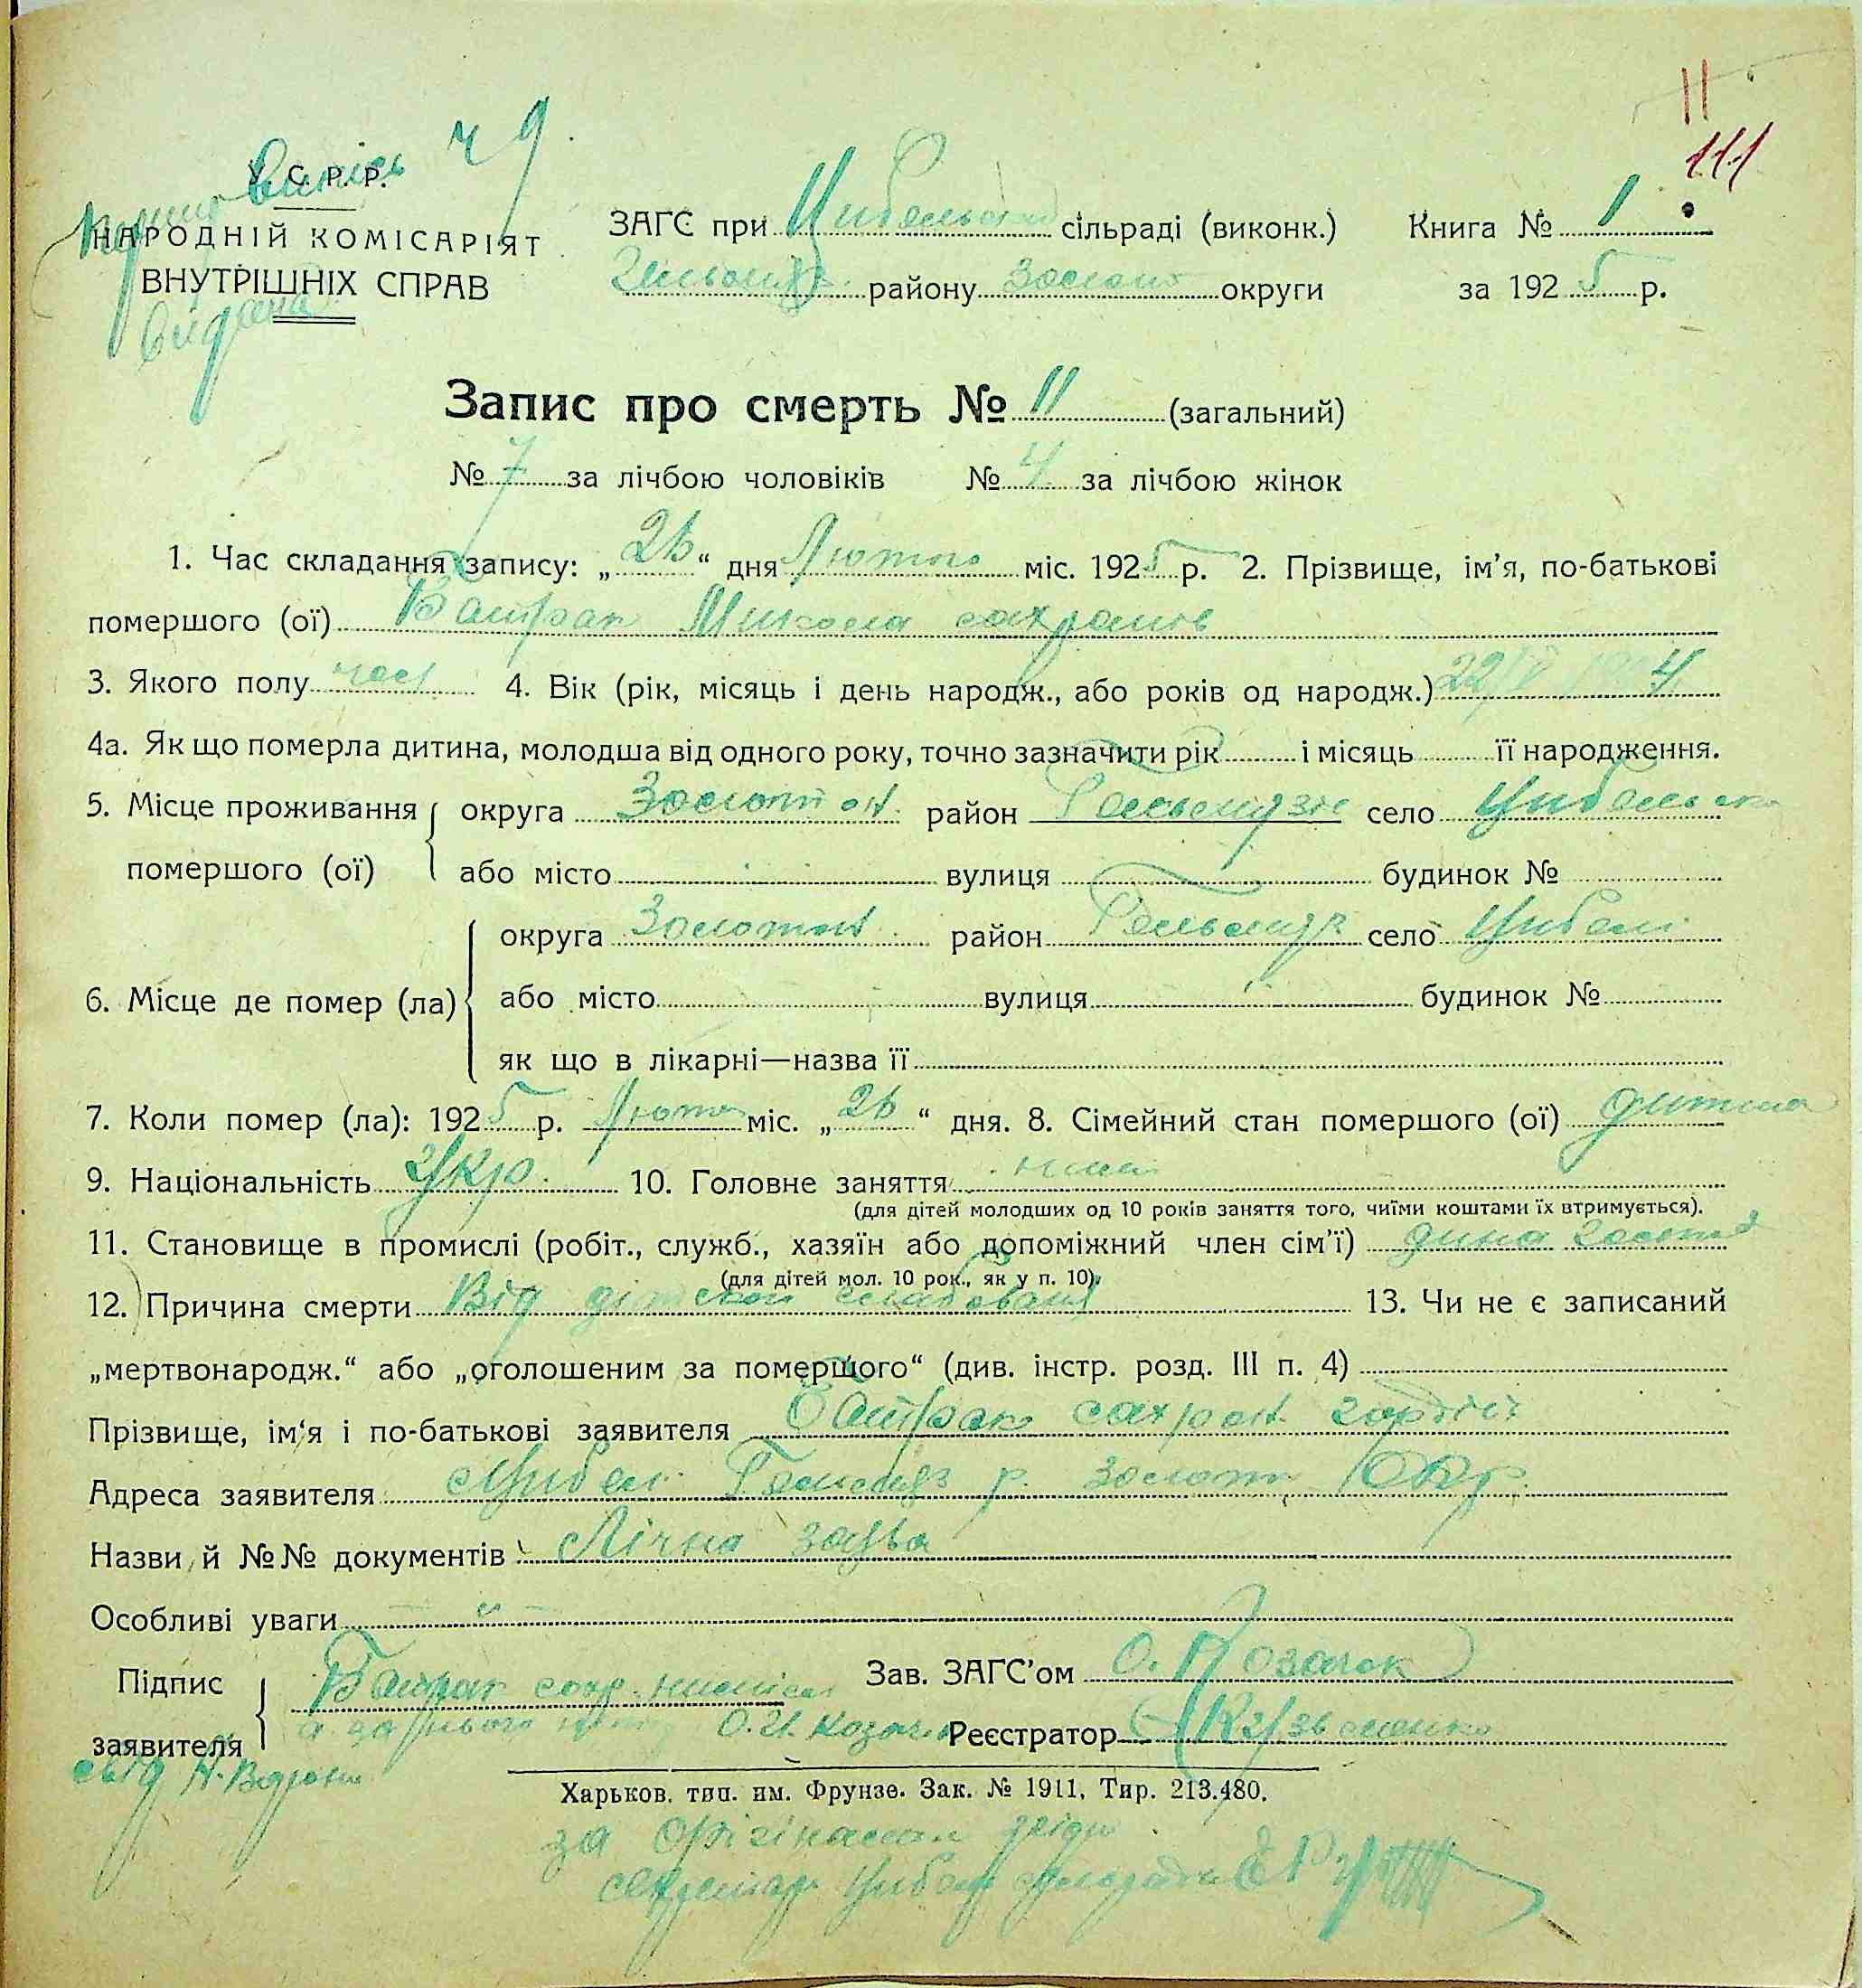 11
111
Випись ч 9
У. С. Р. Р.
НАРОДНІЙ КОМІСАРІЯТ
ВНУТРІШНІХ СПРАВ
видана
ЗАГС при Цибельській сільраді (виконк.) Книга № 1
району Золото округи за 1925 р.
Запис про смерть № 11 (загальний)
№ 7 за лічбою чоловіків № 4 за лічбою жінок
1. Час складання запису: „26“ дня Лютого міс. 1925 р. 2. Прізвище, ім’я, по-батькові
помершого (ої) Батрак Микола сахронів
3. Якого полу чол 4. Вік (рік, місяць і день народж., або років од народж.) 22
4а. Як що померла дитина, молодша від одного року, точно зазначити рік і місяць її народження.
5. Місце проживання округа Золотон. район село
помершого (ої) або місто вулиця будинок №
округа Золотон. район Гельмяз село Цибелі
6. Місце де помер (ла) або місто вулиця будинок №
як що в лікарні—назва її
7. Коли помер (ла): 1925 р. Люто міс. „26“ дня. 8. Сімейний стан помершого (ої) дитина
9. Національність Укр. 10. Головне заняття
(для дітей молодших од 10 років заняття того, чиїми коштами їх втримується).
11. Становище в промислі (робіт., служб., хазяїн або допоміжний член сім’ї)
(для дітей мол. 10 рок., як у п. 10).
12. Причина смерти Від 13. Чи не є записаний
„мертвонародж.“ або „оголошеним за померщого“ (див. інстр. розд. III п. 4)
Прізвище, ім‘я і по-батькові заявителя Батрак сахрон.
Адреса заявителя Цибел. Гельмяз р. золот. Окр.
Назви й №№ документів Лічна заява
Особливі уваги — „ —
Підпис Батрак сахр. Зав. ЗАГС’ом О. Козачок
заявителя О. И. Реєстратор
свід
Харьков. тип. им. Фрунзе. Зак. № 1911, Тир. 213.480.
за
секретарь Цибел